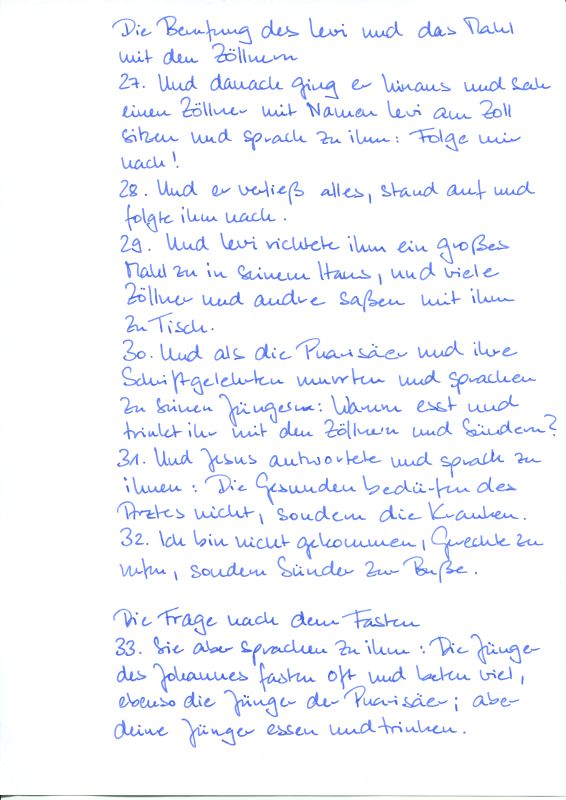 Die Berufung des Levi und das Mahl
mit den Zöllnern
27. Und danach ging er hinaus und sah
einen Zöllner mit Namen Levi am Zoll
sitzen und sprach zu ihm: Folge mir
nach!
28. Und er verließ alles, stand auf und
folgte ihm nach.
29. Und Levi richtete ihm ein großes
Mahl zu in seinem Haus, und viele
Zöllner und andre saßen mit ihm
zu Tisch.
30. Und als die Pharisäer und ihre
Schriftgelehrten murrten und sprachen
zu seinen Jüngern: Warum esst und
trinkt ihr mit den Zöllnern und Sündern?
31. Und Jesus antwortete und sprach zu
ihnen: Die Gesunden bedürfen des
Arztes nicht, sondern die Kranken.
32. Ich bin nicht gekommen, Gerechte zu
rufen, sondern Sünder zur Buße.
Die Frage nach dem Fasten
33. Sie aber sprachen zu ihm: Die Jünger
des Johannes fasten oft und beten viel,
ebenso die Jünger der Pharisäer; aber
deine Jünger essen und trinken.